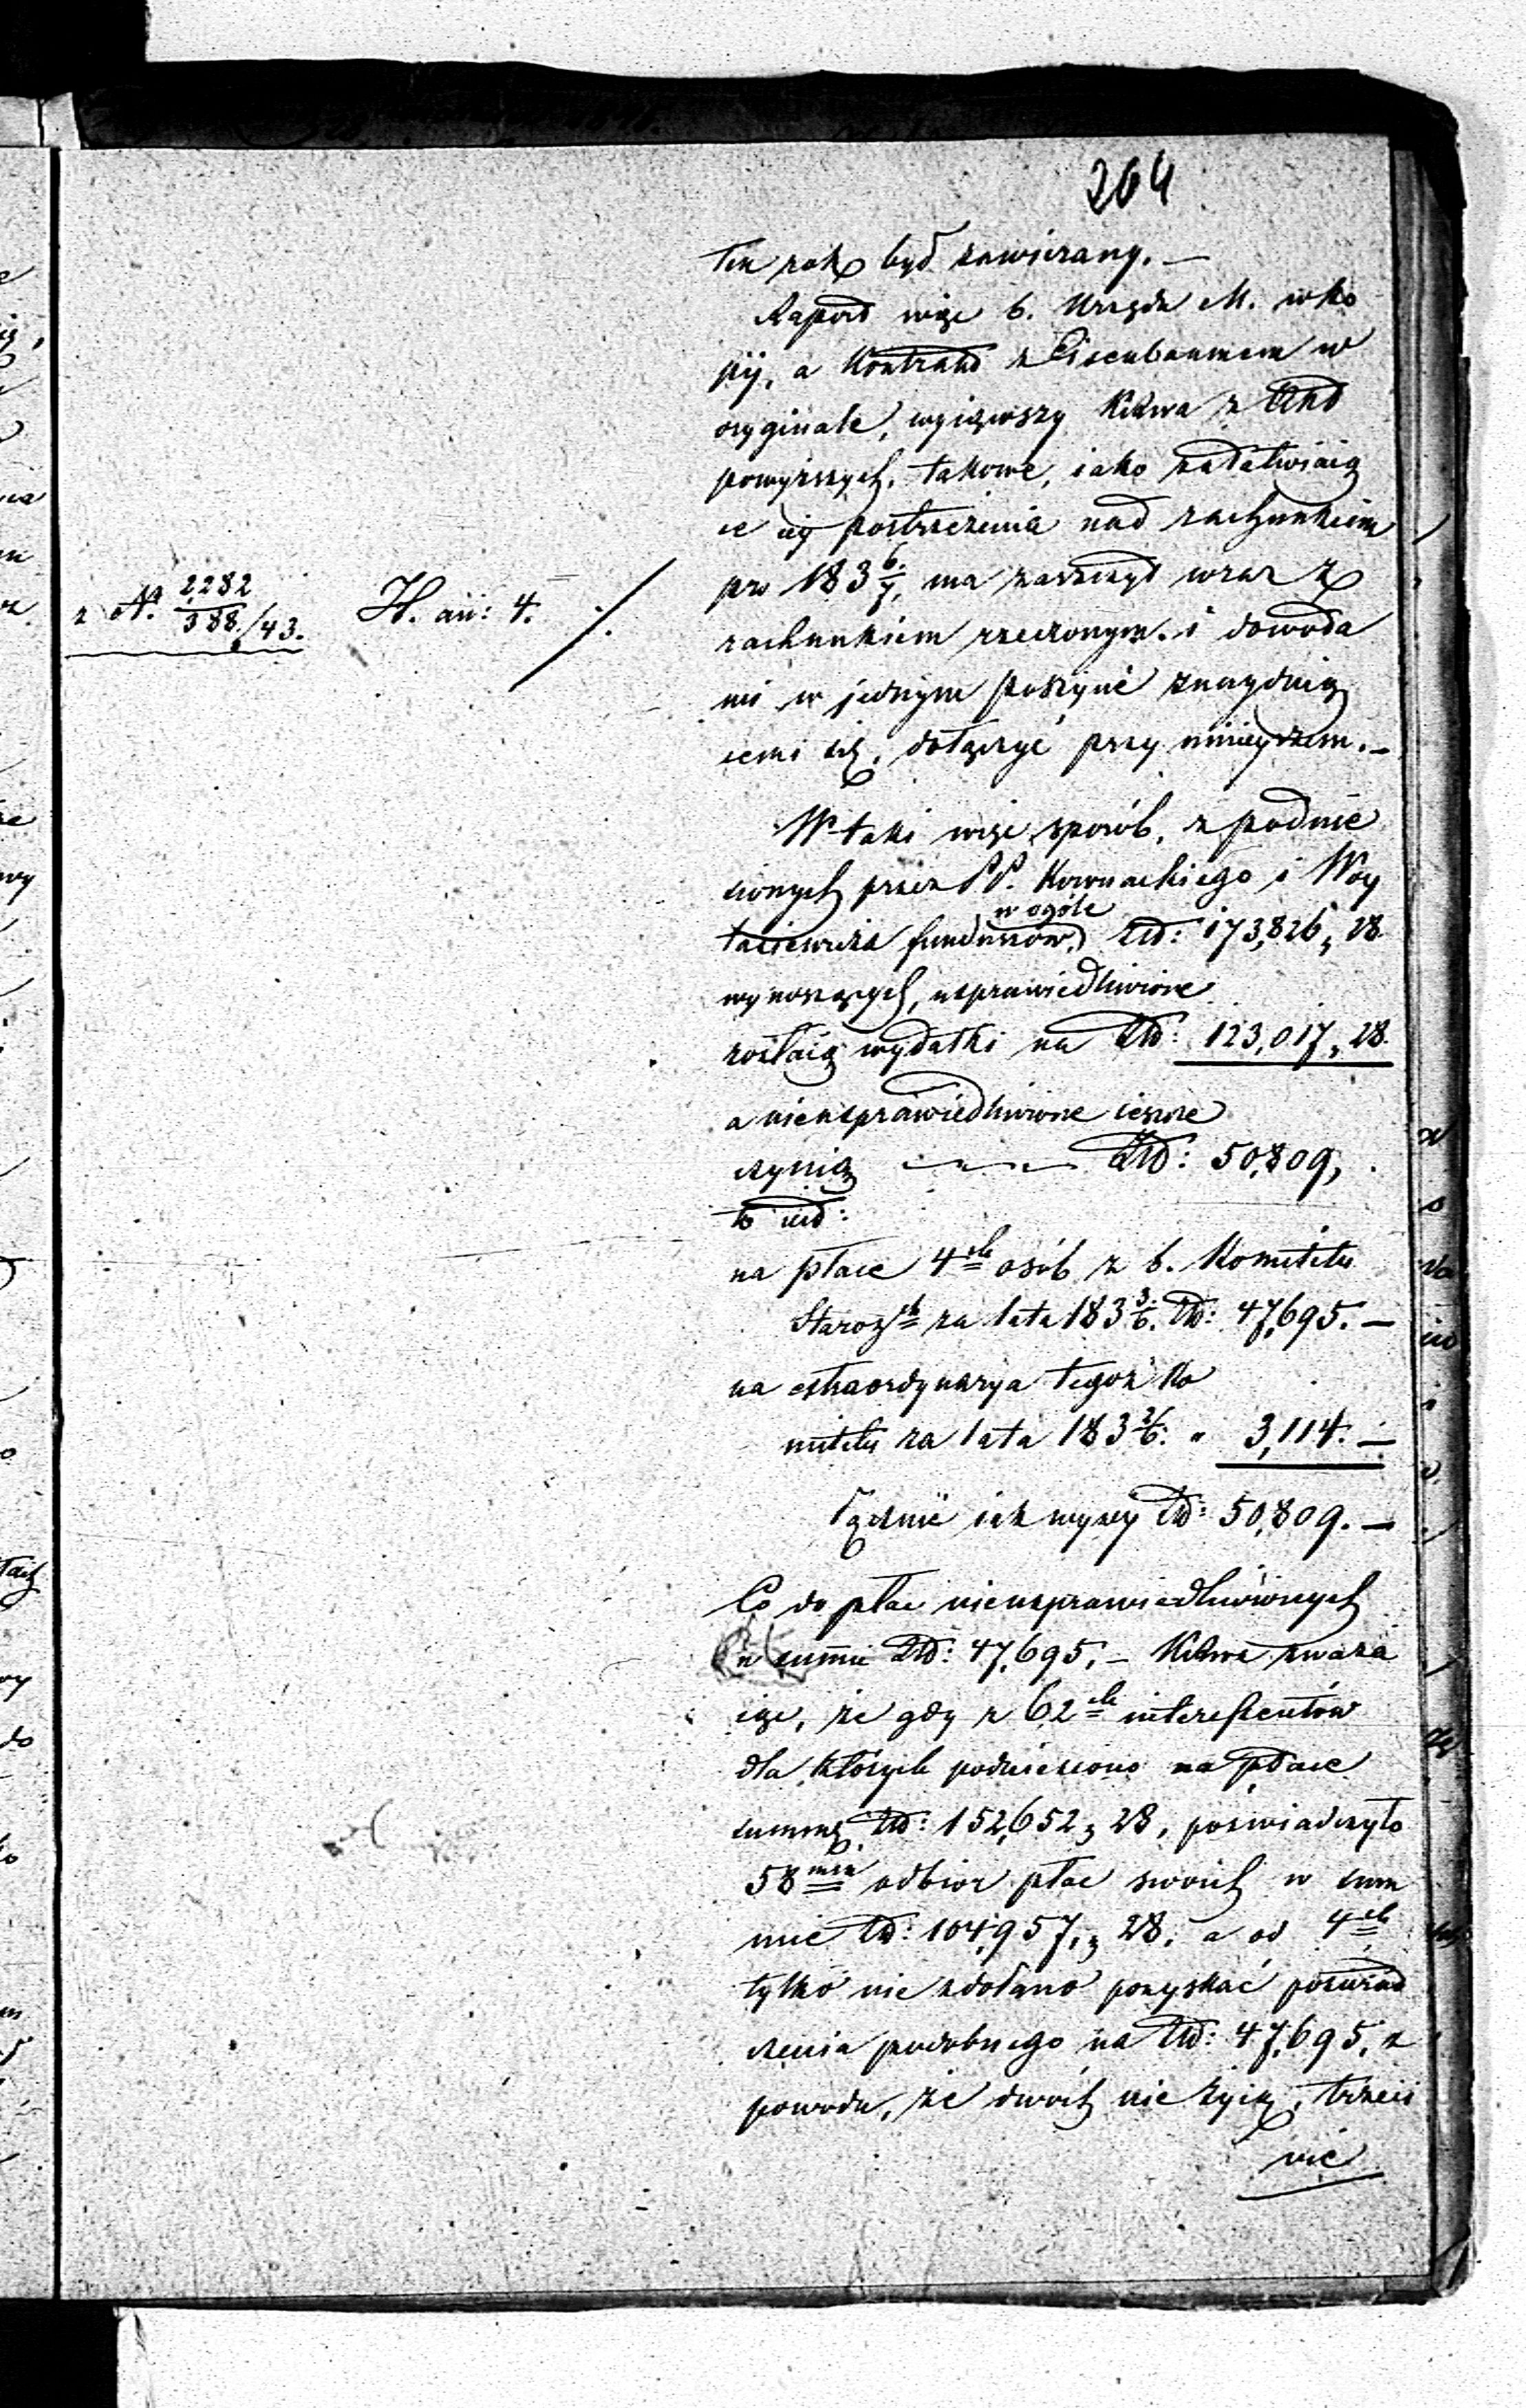 264
ten rok był zawierany. —
Raport więc b. Urzędu M. w ko
pij, a Kontrakt z Eisenbaumem w
oryginale, wyiąwszy KRwa z Akt
powyższych, takowe, iako załatwiaią
ce iéj postrzeżenia nad rachunkiem
pro 183 6/7, ma zaszczyt wraz z
z N. 2,282/388./43. H. aii: 4.
rachunkiem rzeczonym i dowoda
mi w jednym poszycie znayduią
cemi się, dołączyć przy ninieyszem. —
W taki więc sposób, z podnie
sionych przez PP. Kownackiego i Woy
w ogóle
taciewicza funduszów, Złt: 173,826, 28.
wynoszących, usprawiedliwione
zostaią wydatki na Złt: 123,017, 28.
a nieusprawiedliwione ieszcze
czynią — — — Złt: 50,809,
to iest:
na płace 4ch osób z b. Komitetu
Staroz.ch za lata 183 3/6. Złt: 47,695. —
na estraordynarya tegoż Ko
mitetu za lata 183 2/6. " 3,114. —
Łącznie iak wyżey Złt: 50,809. —
Co do płac nieusprawiedliwionych
w summie Złt: 47,695. — KRwa zważa
iąc, że gdy z 62ch interessentów
dla których podniesiono na płace
summę Złt: 152,652, 28, poświadczyło
58miu odbior płac swoich w sum
mie Złt: 104,957, 28, a od 4ch
tylko nie zdołano pozyskać poświad
czenia podobnego na Złt: 47,695, z
powodu, że dwóch nie żyią, trzeci
nie